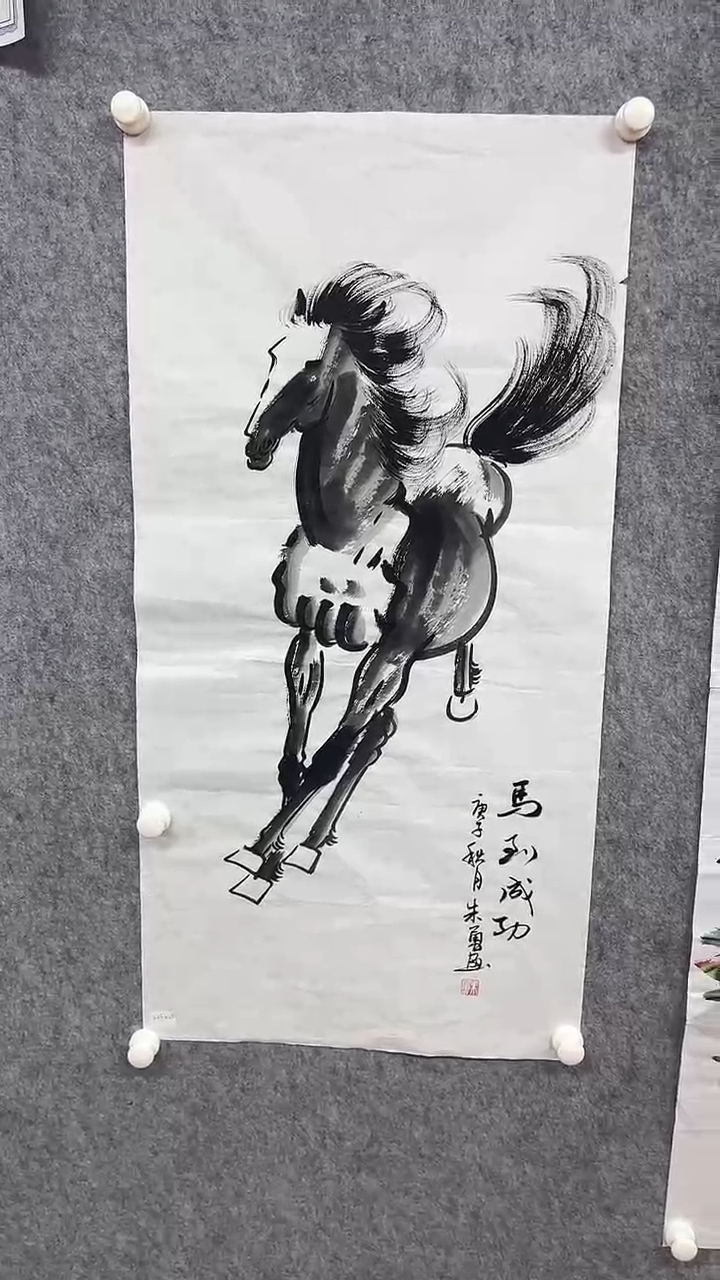 馬到成功
庚子秋月朱勇画